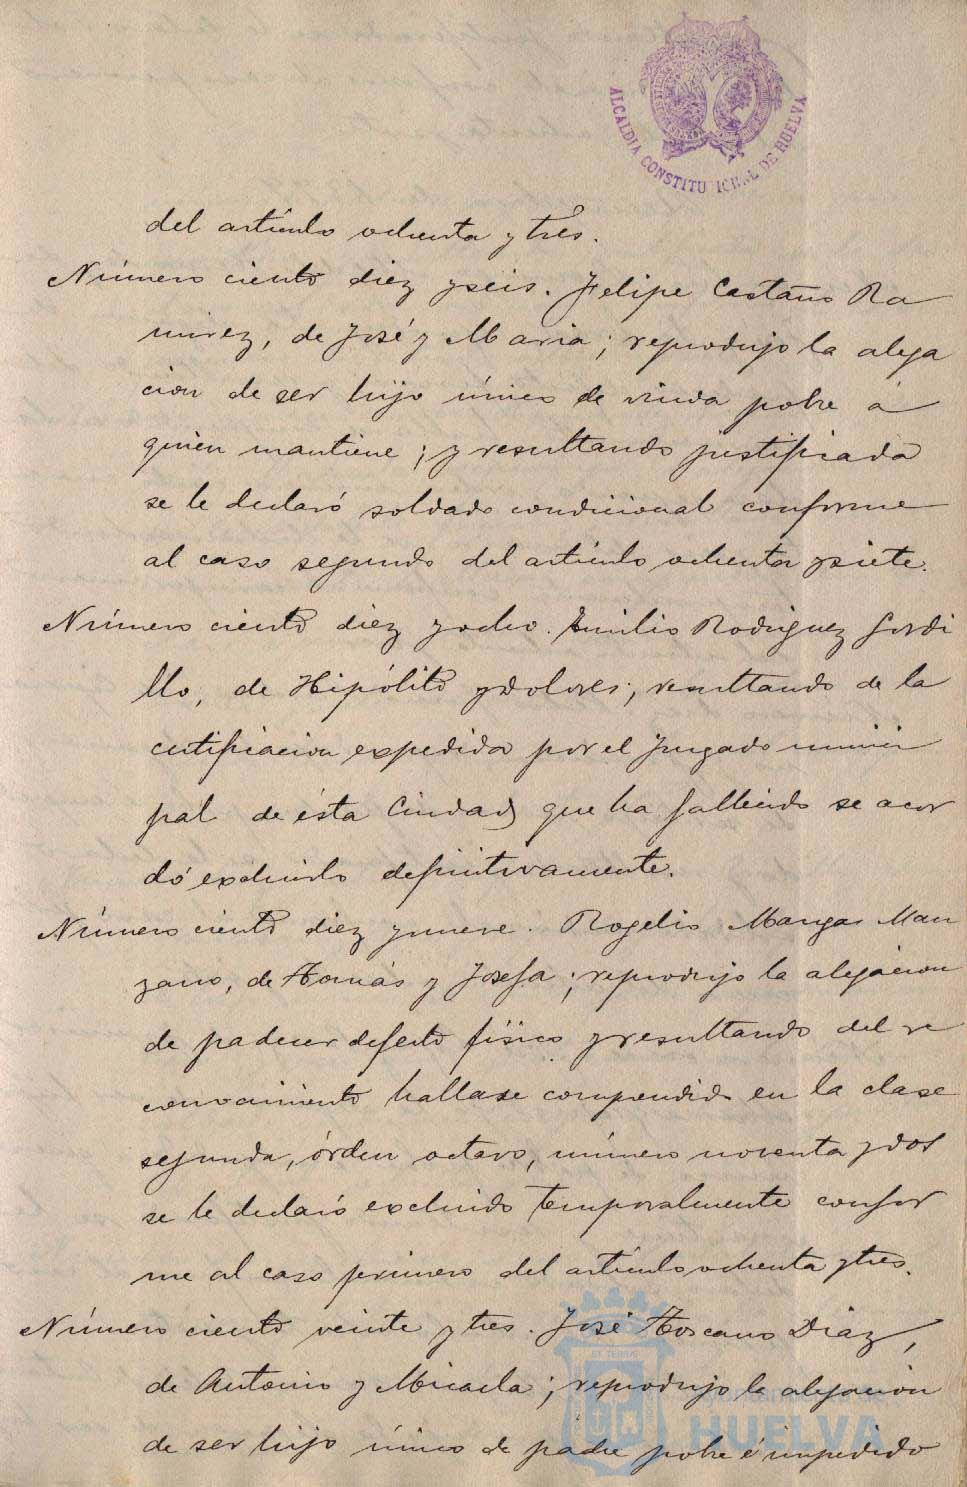 ALCALDIA CONSTITUCIONAL DE HUELVA
del artículo ochenta y tres.
Número ciento diez y seis. Felipe Castaño Ra
mirez, de José y Maria; reprodujo la alega
cion de ser hijo único de viuda pobre á
quien mantiene; y resultando justificada
se le declaró soldado condicional conforme
al caso segundo del artículo ochenta y siete.
Número ciento diez y ocho. Emilio Rodriguez Gordi
llo, de Hipólito y Dolores; resultando de la
certificacion expedida por el Juzgado munici
pal de ésta Ciudad que ha fallecido se acor
dó excluirlo definitivamente.
Número ciento diez y nueve. Rogelio Mangas Man
zano, de Tomás y Josefa; reprodujo la alegacion
de padecer defecto físico y resultando del re
conocimiento hallarse comprendido en la clase
segunda, órden octavo, número noventa y dos
se le declaró excluido temporalmente confor
me al caso primero del artículo ochenta y tres.
Número ciento veinte y tres. José Toscano Diaz,
de Antonio y Micaela; reprodujo la alegacion
de ser hijo único de padre pobre é impedido
Ayuntamiento de
HUELVA